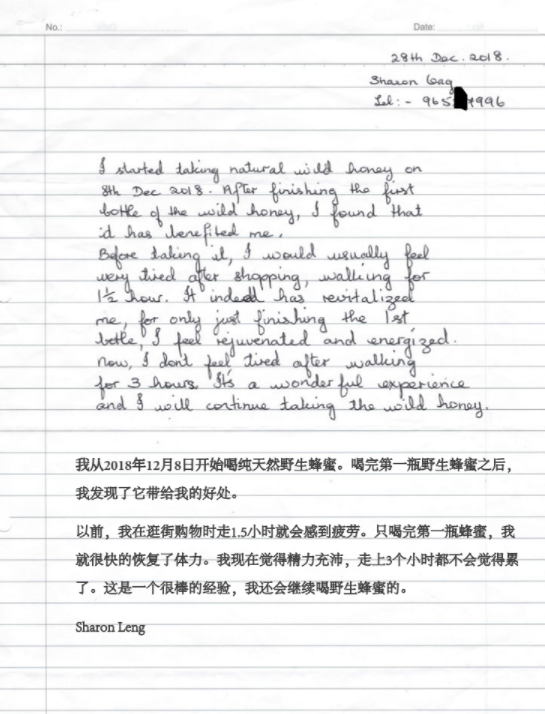 No.:
Date:
28th Dec. 2018.
Sharon Leng
Tel:- 965 7996
I started taking natural wild honey on
8th Dec 2018. After finishing the first
bottle of the wild honey, I found that
it has benefited me.
Before taking it, I would usually feel
very tired after shopping, walking for
1½ hour. It indeed has revitalized
me, for only just finishing the 1st
bottle, I feel rejuvenated and energized.
Now, I dont feel tired after walking
for 3 hours. It's a wonderful experience
and I will continue taking the wild honey.
我从2018年12月8日开始喝纯天然野生蜂蜜。喝完第一瓶野生蜂蜜之后，
我发现了它带给我的好处。
以前，我在逛街购物时走1.5小时就会感到疲劳。只喝完第一瓶蜂蜜，我
就很快的恢复了体力。我现在觉得精力充沛，走上3个小时都不会觉得累
了。这是一个很棒的经验，我还会继续喝野生蜂蜜的。
Sharon Leng